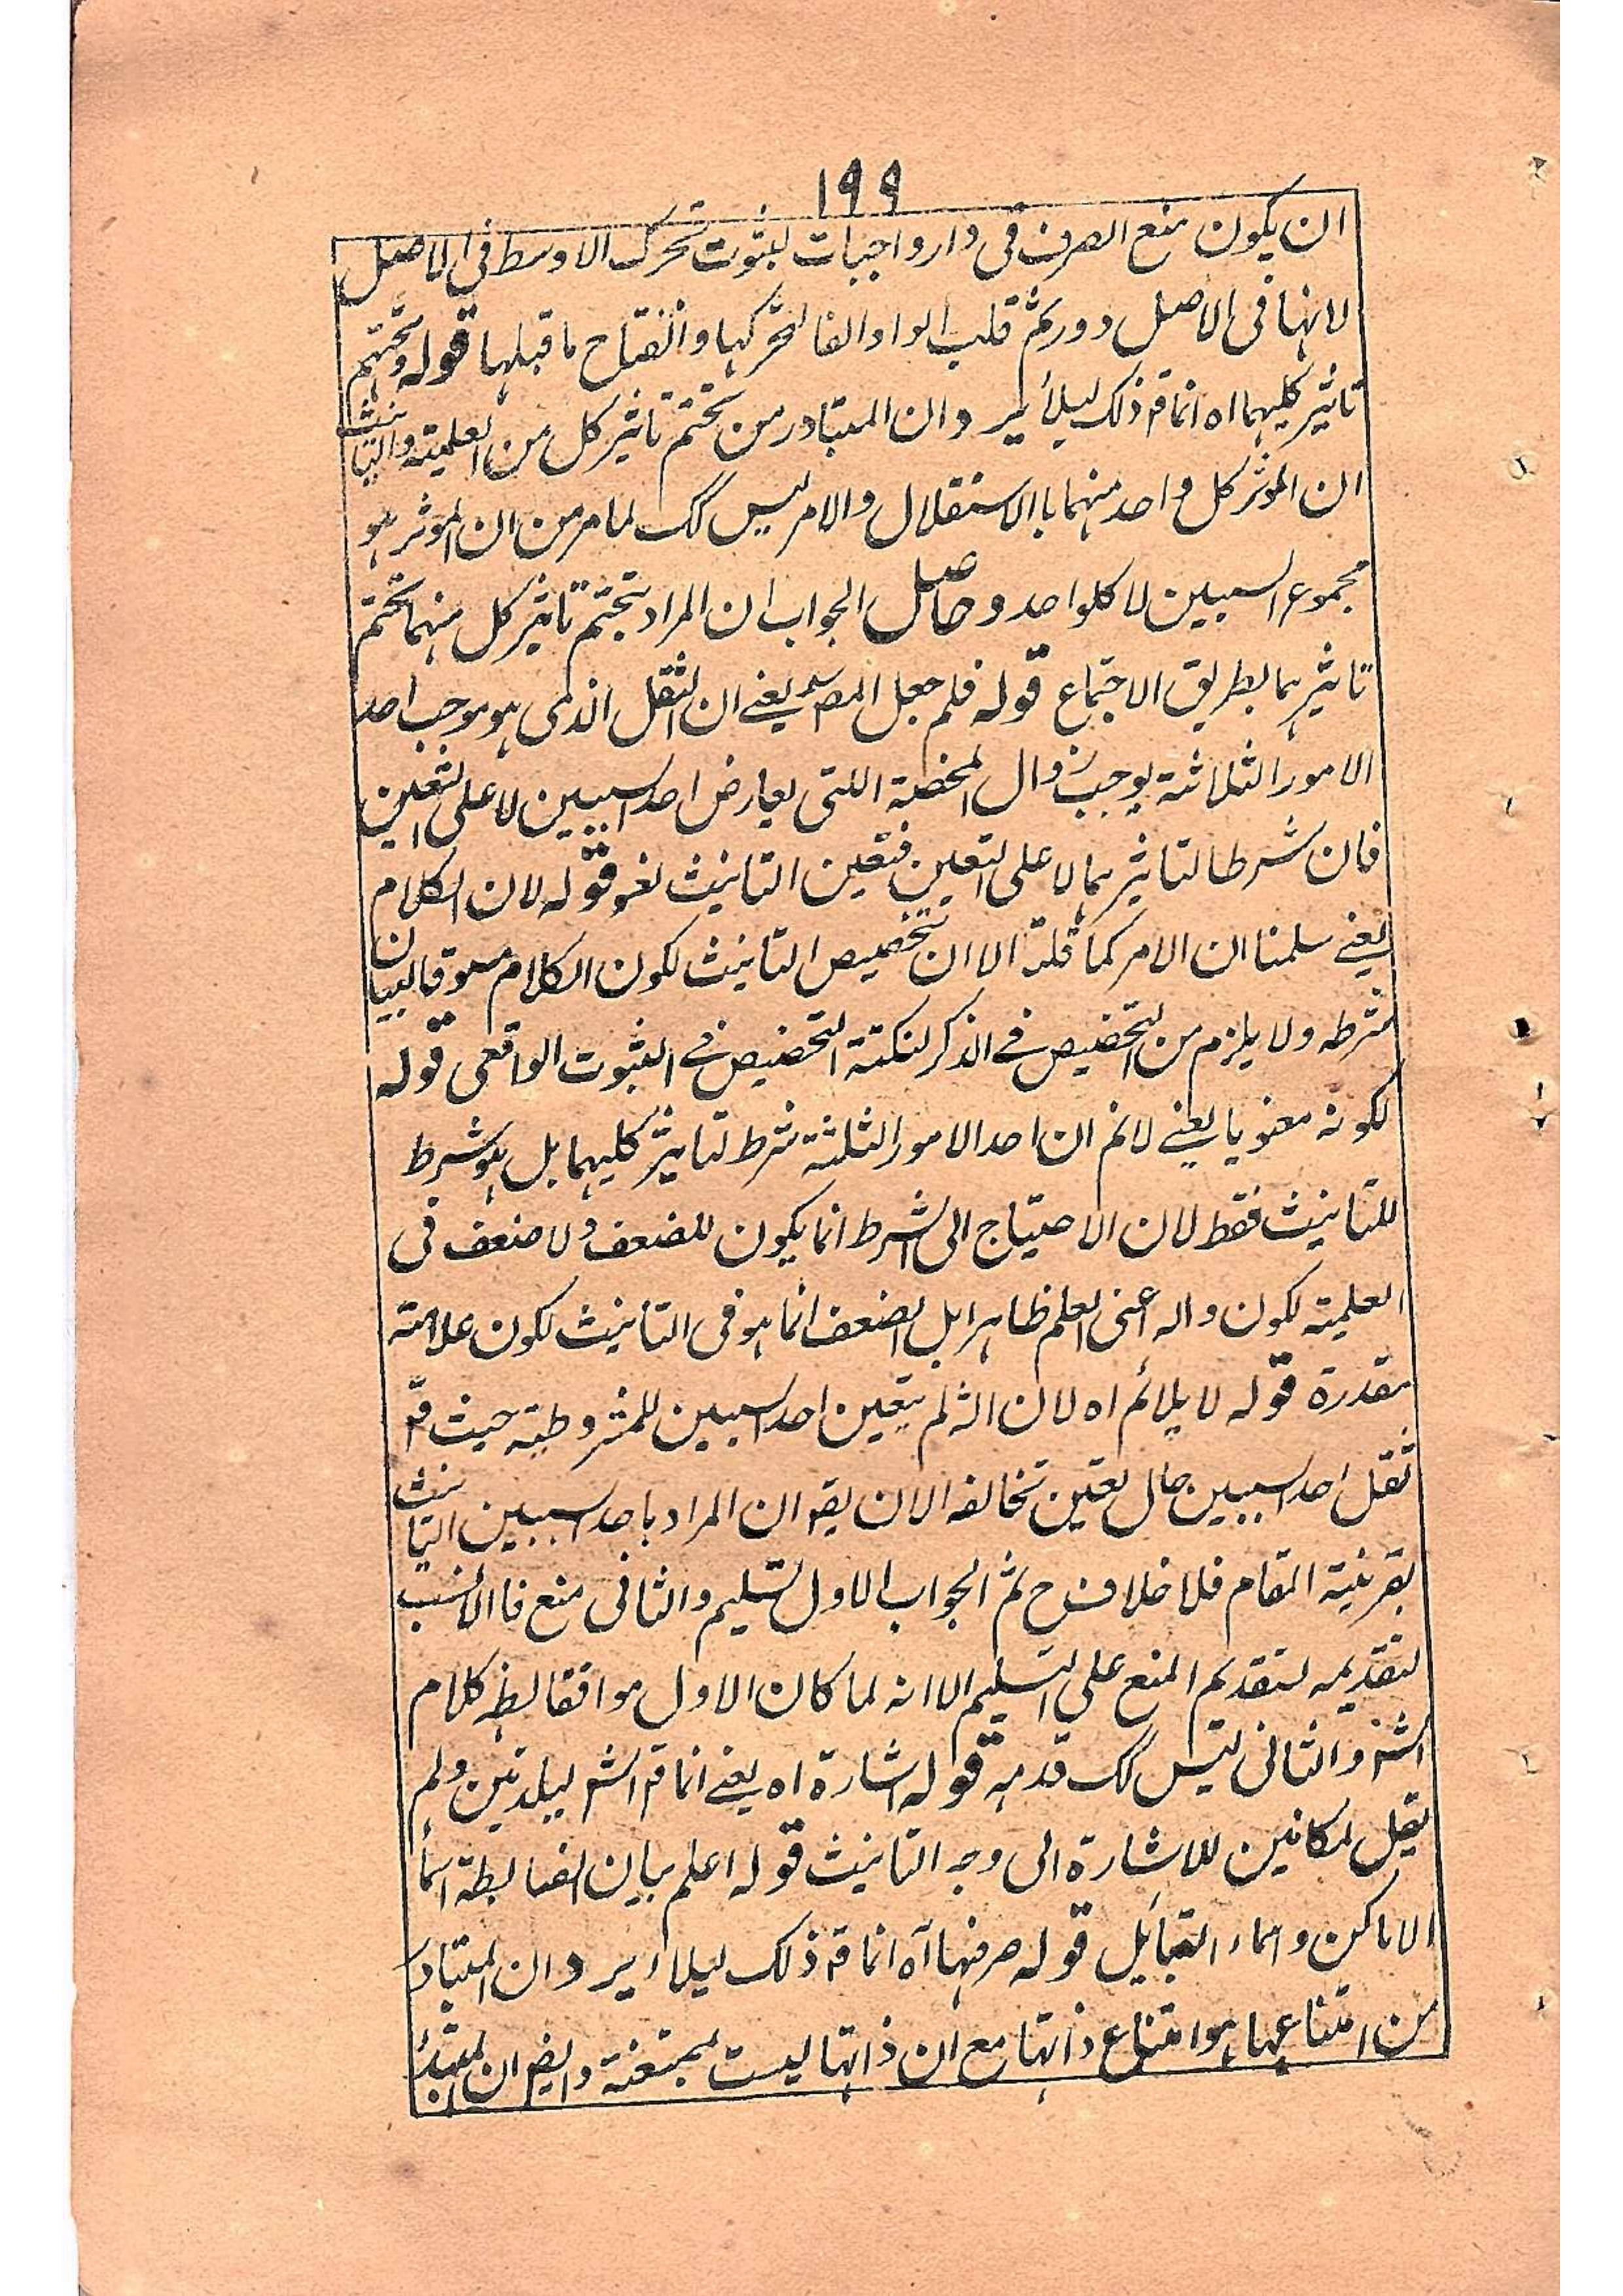 ١٩٩
ان يكون منع الصرف فى دار واجبات لثبوت تحرك الاوسط فى الاصل
لانها فى الاصل دور ثم قلب الواو الفا لتحركها وانفتاح ما قبلها قوله وتحتم
تاثير كليهما اه انما قه ذلك ليلأ ير دان المتبادر من تحتم تاثير كل من العلمية والتانيث
ان الموثر كل واحد منهما باالاستقلال والامر ليس كك لما مر من ان الموثر هو
مجموع السببين لا كلواحد وحاصل الجواب ان المراد بتحتم تاثير كل منهما تحتم
تاثيرهما بطريق الاجتماع قوله فلم جعل المصر يعنے ان الثقل الذى هو موجب احد
الامور الثلاثة يوجب زوال الخفة اللتى يعارض احد السببين لا على التعين
فان شرطا لتاثيرهما لا على التعين فتعين التانيث لغو قوله لان الكلام
يعنے سلمنا ان الامر كما قلت الا ان تخصيص التانيث لكون الكلام مسوقا لبيان
شرطه ولا يلزم من التخصيص فے الذكر لنكتة التخصيص فے الثبوت الواقعى قوله
لكونه معنويا يعنے لانم ان احد الامور الثلثة شرط لتاثير كليهما بل هو شرط
للتانيث فقط لان الاحتياج الى الشرط انما يكون للضعف ولا ضعف فى
العلمية لكون داله اعنى العلم ظاهرا بل الضعف انما هو فى التانيث لكون علامته
مقدرة قوله لا يلائم اه لان الشه لم يتعين احد السببين للمشروطية حيث قه
ثقل احد السببين حال تعين تخالفه الان يقو ان المراد باحد السببين التانيث
بقرينة المقام فلا خلاف ح ثم الجواب الاول تسليم والثانى منع فا الانسب
لتقديمه لتقديم المنع على التسليم الا انه لما كان الاول موافقا لظه كلام
الشه والثانى ليس كك قدمه قوله اشارة اه يعنے انما قه الشه لبلدتين ولم
يقل لمكانين للاشارة الى وجه التانيث قوله اعلم بيان لضابطة اسمأ
الاماكن واسماء القبايل قوله صرفها آه انما قه ذلك ليلاء ير دان المتبادر
من امتناعها هو امتناع ذاتها مع ان ذاتها ليست بممتنعة وايضم ان المبتدأ